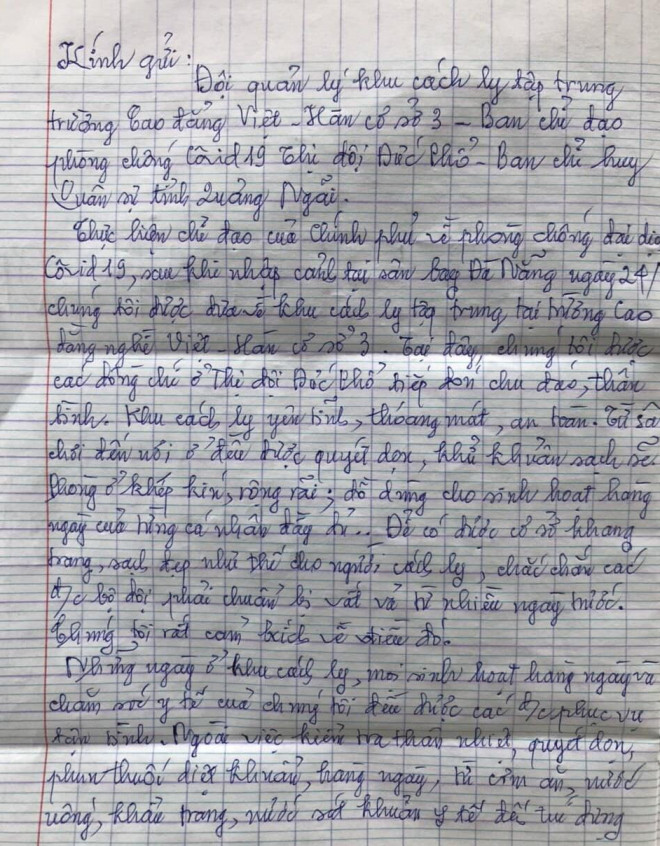 Kính gửi:
Đội quản lý khu cách ly tập trung
trường Cao đẳng Việt - Hàn cơ sở 3 - Ban chỉ đạo
phòng chống Côvid 19 Thị đội Đức Phổ - Ban chỉ huy
Quân sự tỉnh Quảng Ngãi.
Thực hiện chỉ đạo của Chính phủ về phòng chống đại dịc
Côvid 19, sau khi nhập cảnh tại sân bay Đà Nẵng ngày 24/
chúng tôi được đưa về khu cách ly tập trung tại trường Cao
đẳng nghề Việt - Hàn cơ sở 3. Tại đây, chúng tôi được
các đồng chí ở Thị đội Đức Phổ tiếp đón chu đáo, thân
tình. Khu cách ly yên tĩnh, thoáng mát, an toàn. Từ sâ
chơi đến nơi ở đều được quyét dọn, khử khuẩn sạch sẽ
Phòng ở khép kín, rộng rãi; đồ dùng cho sinh hoạt hàng
ngày của từng cá nhân đầy đủ... Để có được cơ sở khang
trang, sạch đẹp như thế cho người cách ly, chắc chắn các
đ/c bộ đội phải chuẩn bị vất vả từ nhiều ngày trước.
Chúng tôi rất cảm kích về điều đó.
Những ngày ở khu cách ly, mọi sinh hoạt hàng ngày và
chăm sóc y tế của chúng tôi đều được các đ/c phục vụ
tận tình. Ngoài việc kiểm tra thân nhiệt, quyét dọn,
phun thuốc diệt khuẩn, hàng ngày, từ cơm ăn, nước
uống, khẩu trang, nước sát khuẩn y tế đến đúng